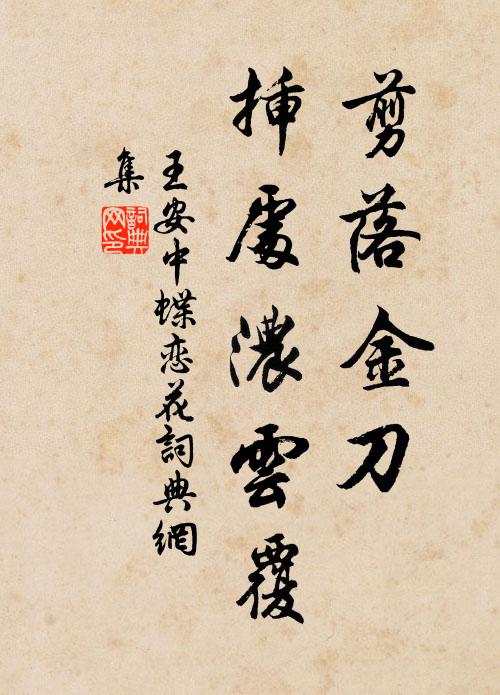 剪落金刀
插處濃雲覆
王安中蝶恋花詞典網
集
詞典網印